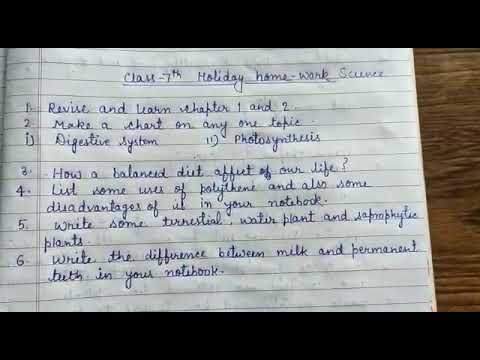 Class-7th Holiday home-work Science
1. Revise and learn chapter 1 and 2.
2. Make a chart on any one topic.
i) Digestive system ii) Photosynthesis
3. How a balanced diet affect of our life?
4. List some uses of polythene and also some
disadvantages of it in your notebook.
5. Write some terrestrial, water plant and saprophytic
plants.
6. Write the difference between milk and permanent
teeth in your notebook.